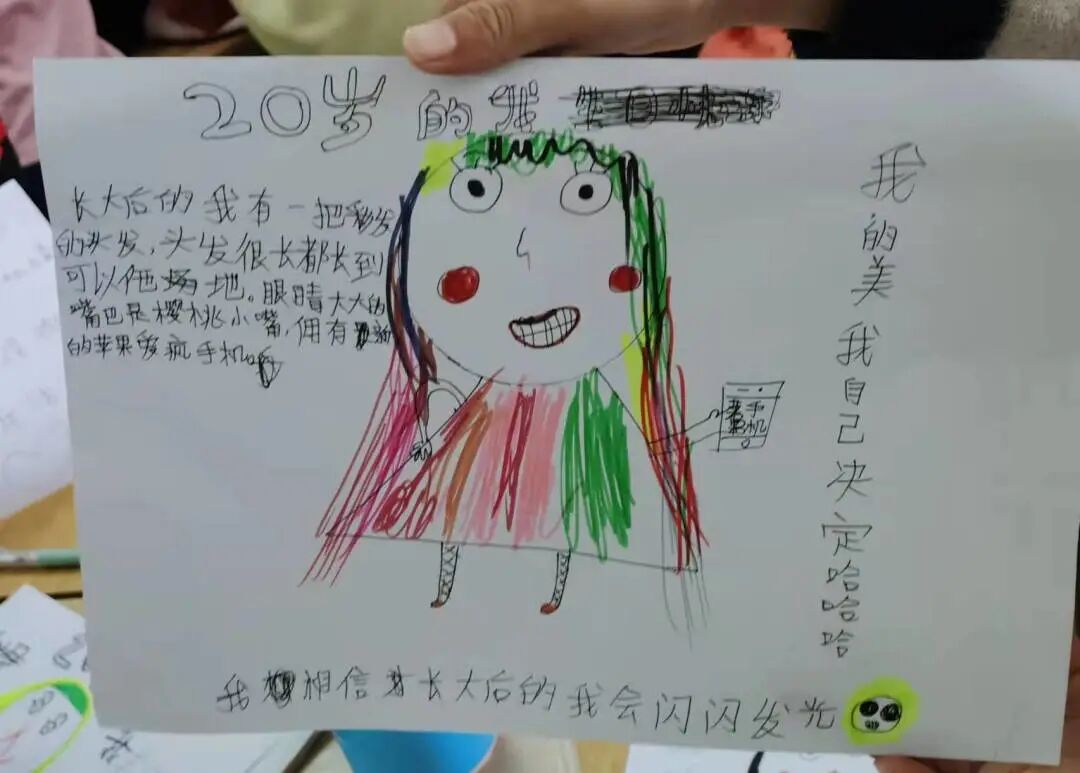 20岁的我
长大后的我有一把彩发
的头发，头发很长都长到
可以拖地。眼睛大大的
嘴巴是樱桃小嘴，佣有
的苹果爱疯手机
手机
我的美我自己决定哈哈哈
我相信长大后的我会闪闪发光